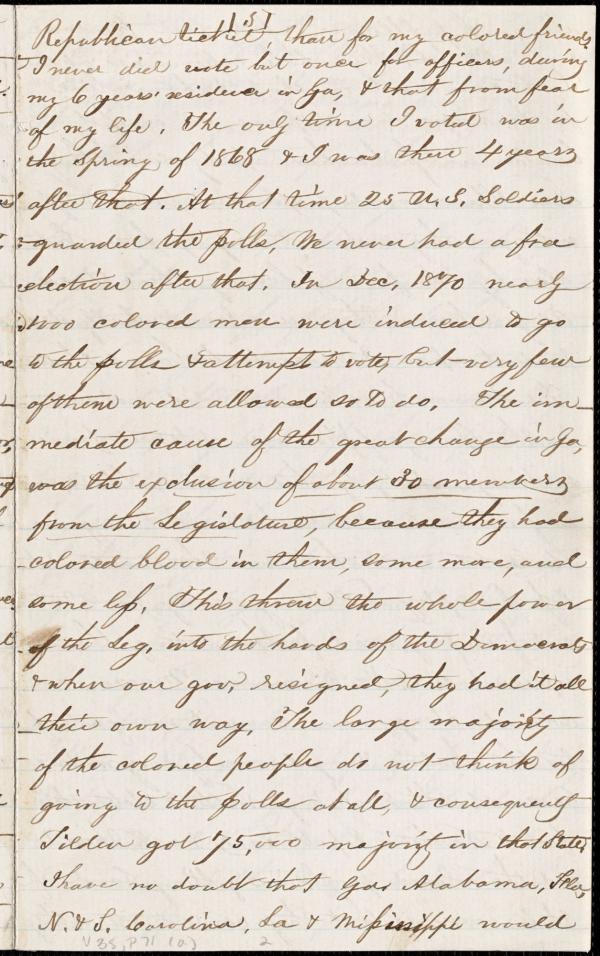 [5]
Republican ticket than for my colored friends.
I never did vote but once for officers, during
my 6 years' residence in Ga, & that from fear
of my life. The only time I voted was in
the Spring of 1868 & I was there 4 years
after that. At that time 25 U.S. Soldiers
guarded the polls. We never had a free
election after that. In Dec, 1870 nearly
1000 colored men were induced to go
to the polls & attempt to vote, but very few
of them were allowed so to do. The im-
mediate cause of the great change in Ga,
was the exclusion of about 30 members
from the Legislature, because they had
colored blood in them, some more, and
some less. This threw the whole power
of the Leg. into the hands of the Democrats
& when our gov. resigned, they had it all
their own way. The large majority
of the colored people do not think of
going to the polls at all, & consequently
Tilden got 75,000 majority in that State.
I have no doubt that Ga, Alabama, Fla,
N. & S. Carolina, La & Mississippi would
V 35, P 71 (a) 2